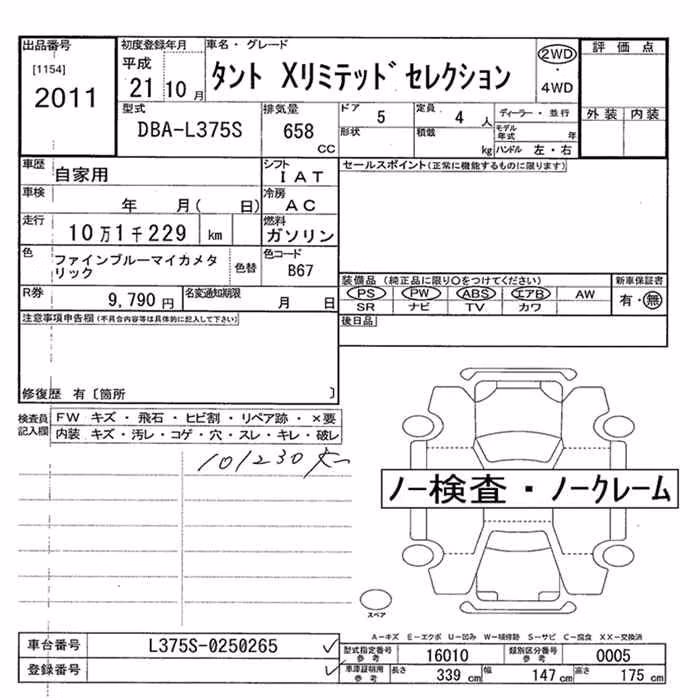 出品番号 初度登録年月 車名・グレード
[1154] 2011 平成 21 10月 タント Xリミテッド セレクション 2WD・4WD 評価点
型式 DBA-L375S 排気量 658 CC ドア 5 定員 4 人 ディーラー・並行 外装 内装
形状 積載 kg モデル年式 年 ハンドル 左・右
車歴 自家用 シフト IAT セールスポイント(正常に機能するものに限ります)
車検 年 月( 日) 冷房 AC
走行 10万1千229 km 燃料 ガソリン
色 ファインブルーマイカメタリック 色替 色コード B67
装備品(純正品に限り○をつけてください) 新車保証書
PS PW ABS エアB AW 有・無
SR ナビ TV カワ
R券 9,790円 名変通知期限 月 日
注意事項申告欄(不具合内容等は具体的に記入して下さい) 後日品
修復歴 有〔箇所 〕
検査員記入欄 FW キズ・飛石・ヒビ割・リペア跡・×要
内装 キズ・汚レ・コゲ・穴・スレ・キレ・破レ
101230
ノー検査・ノークレーム
スペア
A-キズ E-エクボ U-凹み W-補修跡 S-サビ C-腐食 XX-交換済
車台番号 L375S-0250265 型式指定番号 参考 16010 類別区分番号 参考 0005
登録番号 車庫証明用 参考 長さ 339 cm 幅 147 cm 高さ 175 cm